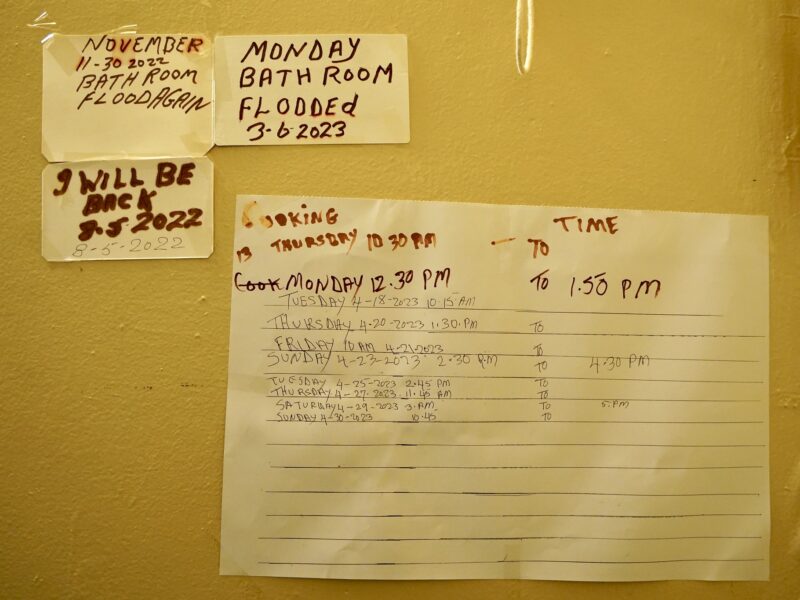 NOVEMBER
11-30 2022
BATH ROOM
FLOODAGAIN
MONDAY
BATH ROOM
FLODDEd
3-6-2023
I WILL BE
BACK
8-5 2022
8-5-2022
COOKING TIME
13 THURSDAY 10 30 AM - TO
Cook MONDAY 12.30 PM TO 1.50 PM
TUESDAY 4-18-2023 10.15 AM
THURSDAY 4-20-2023 1:30.PM TO
FRIDAY 10 AM 4-21-2023 TO
SUNDAY 4-23-2023 2.30 P.M TO 4:30 PM
TUESDAY 4-25-2023 2.45 PM TO
THURSDAY 4-27-2023 11.45 AM TO
SATURDAY 4-29-2023 3.AM. TO 5.PM
SUNDAY 4-30-2023 10.45 TO